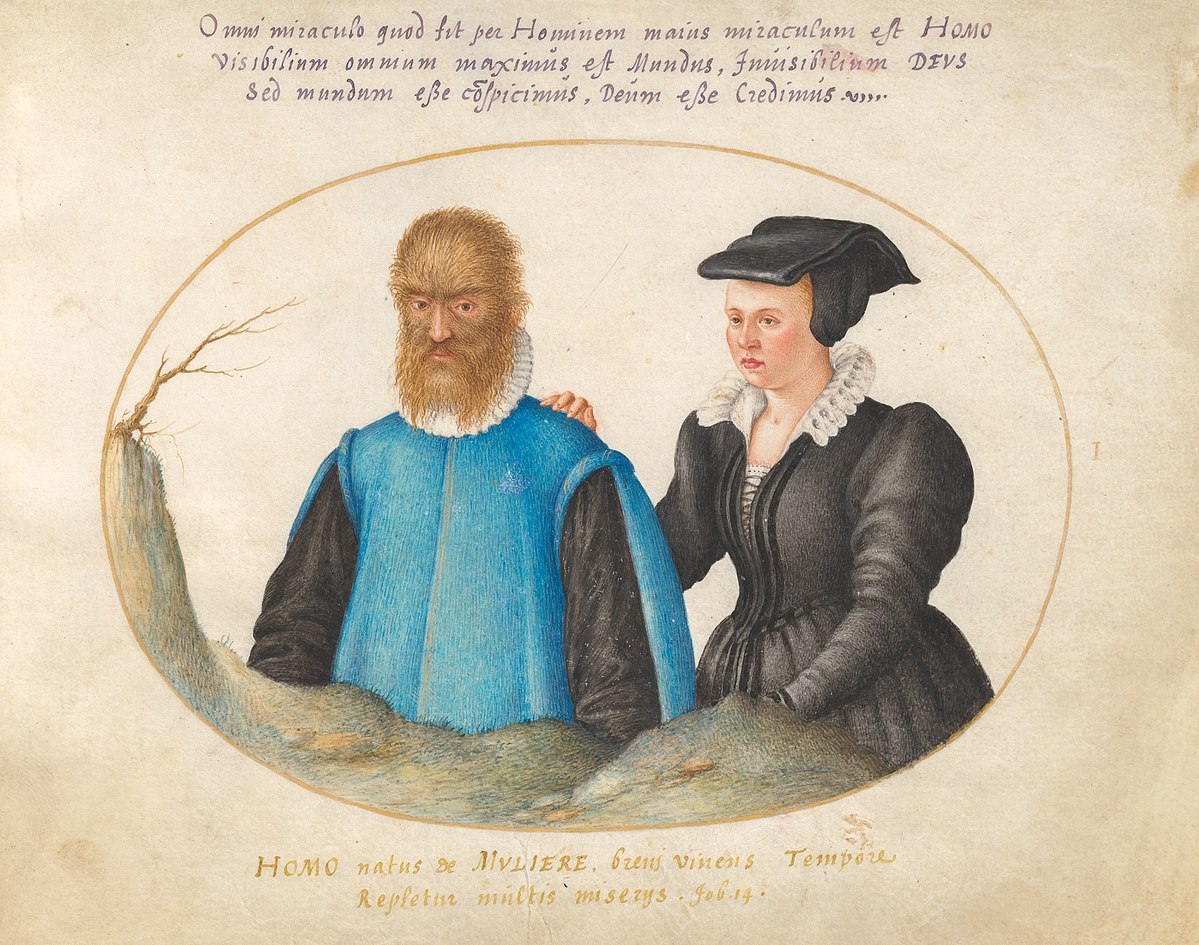 Omni miraculo quod fit per Hominem maius miraculum est HOMO
Visibilium omnium maximus est Mundus, Invisibilium DEVS
Sed mundum eße cõspicimus, Deum eße Credimus
I
HOMO natus de MVLIERE, brevi vivens Tempore
Repletur multis miserys. Job. 14.